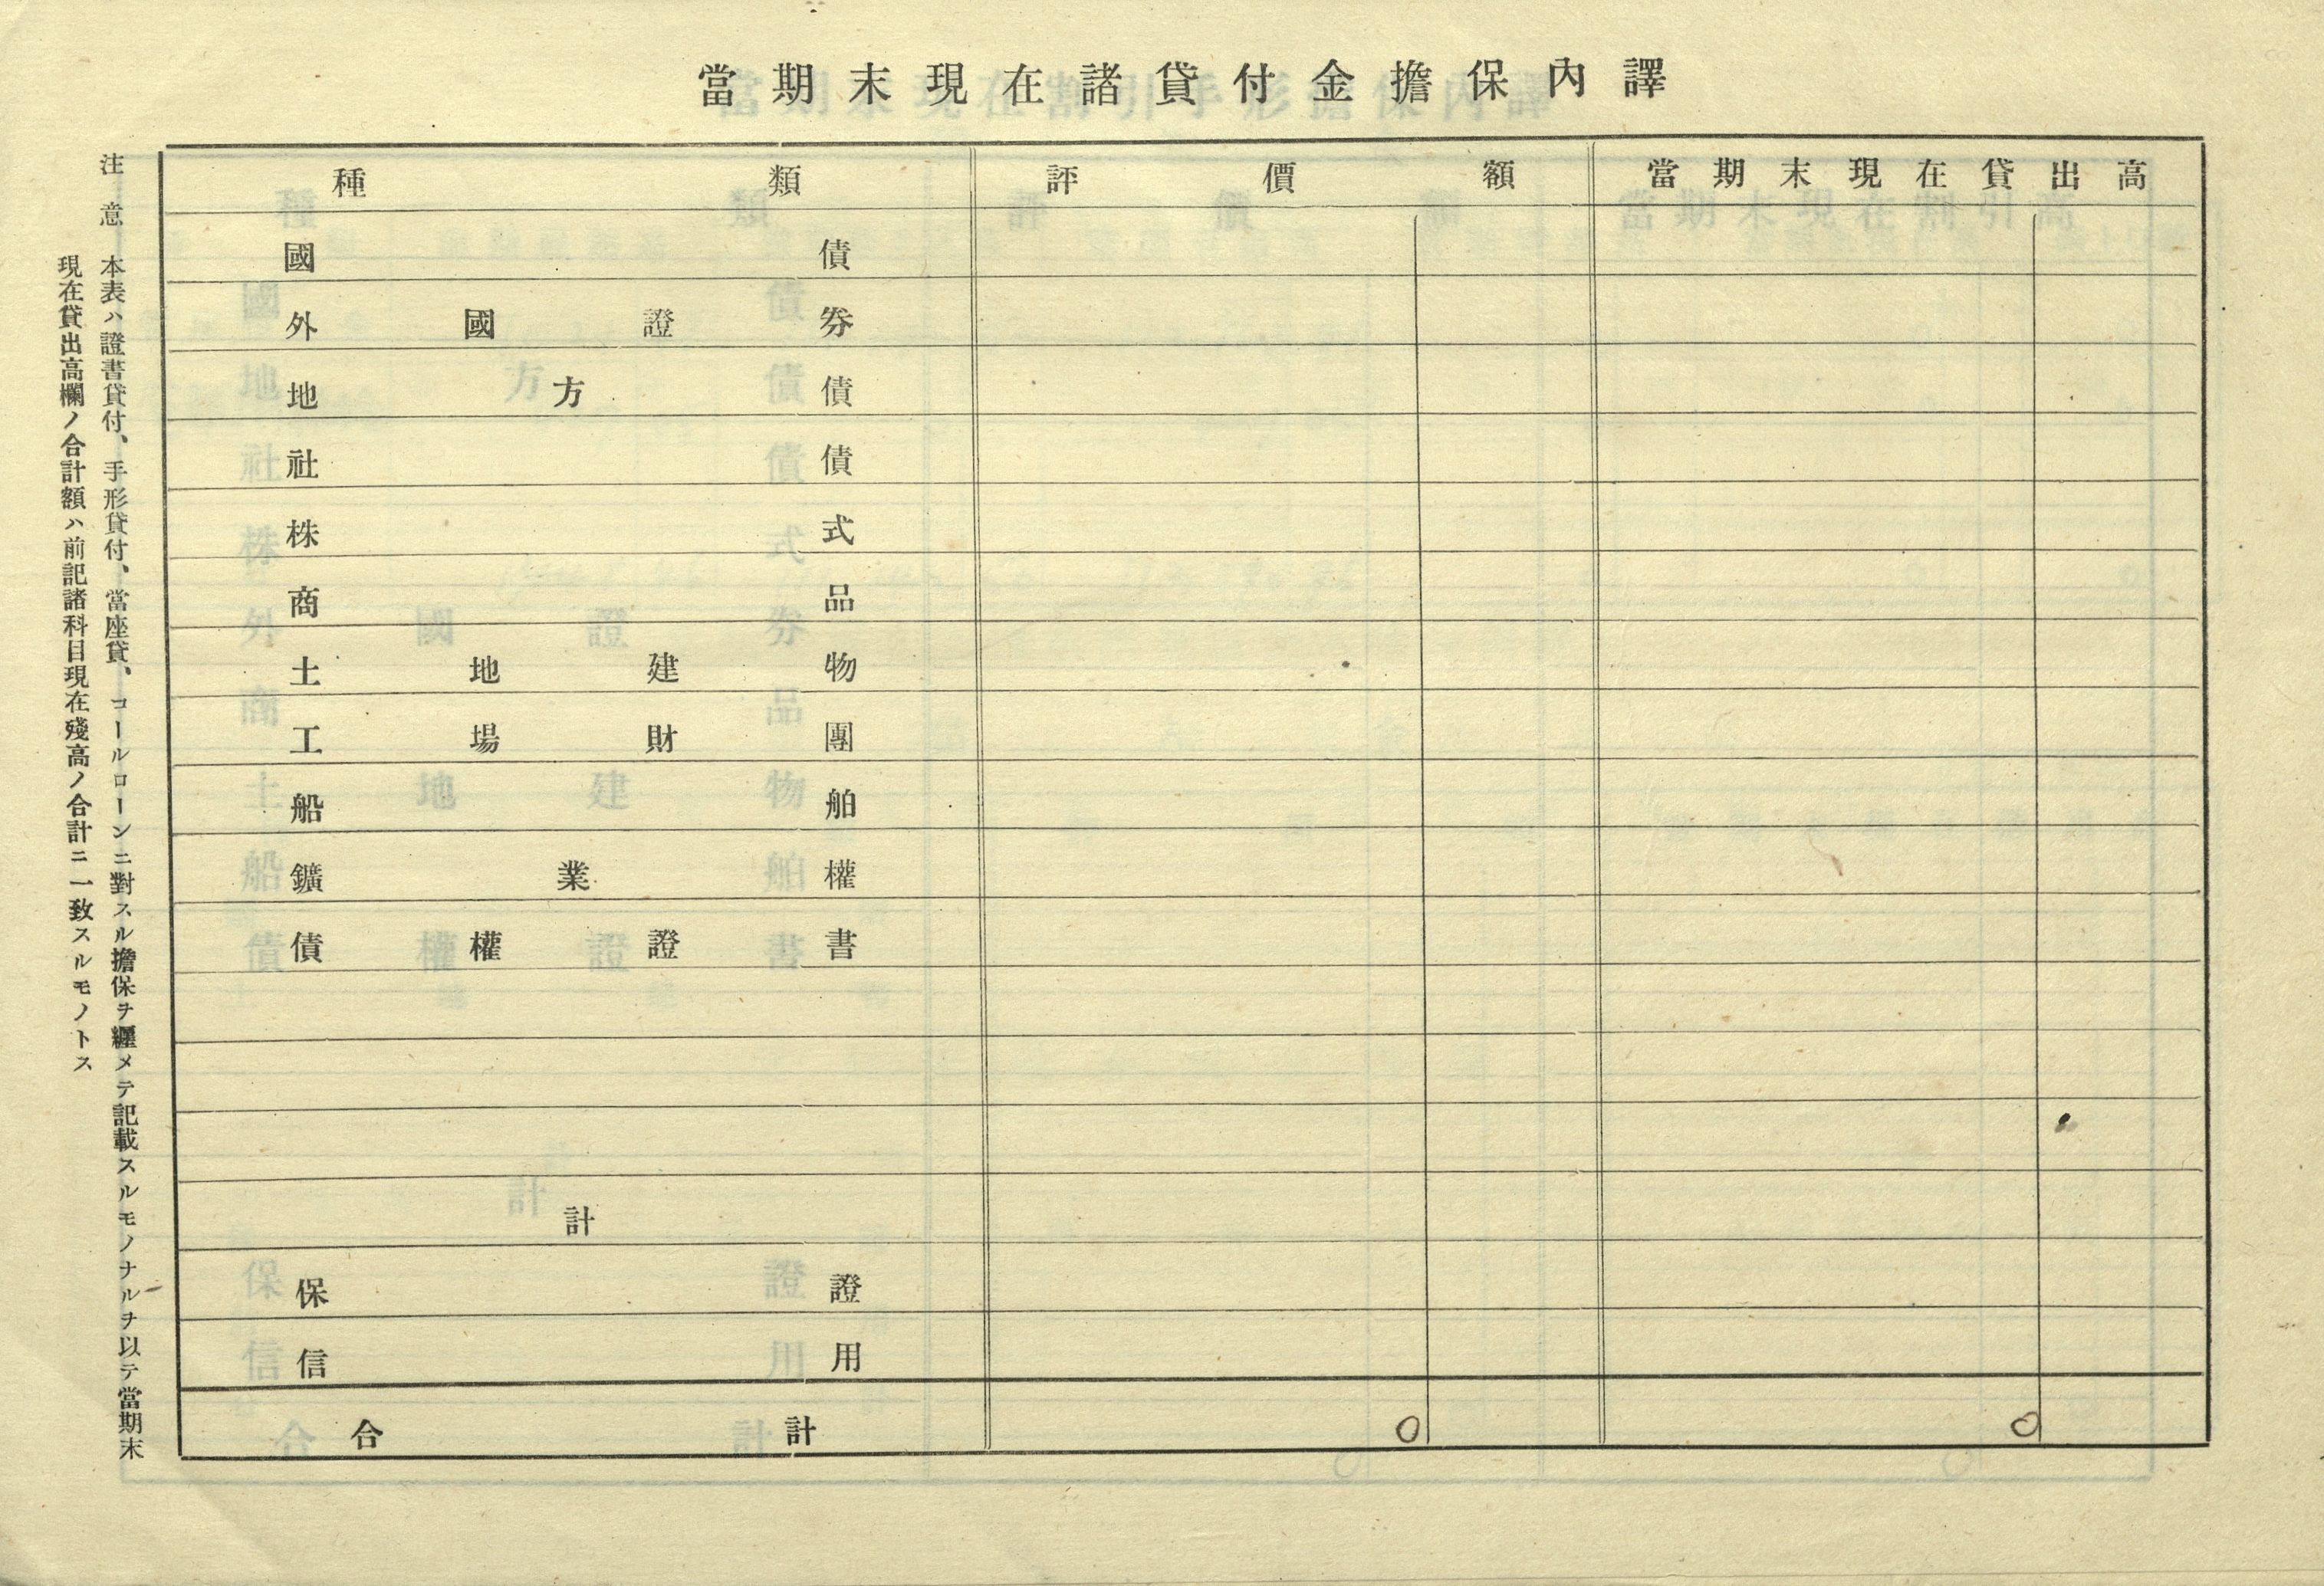 當期末現在諸貸付金擔保內譯
種類 評價額 當期末現在貸出高
國債
外國證券
地方債
社債
株式
商品
土地建物
工場財團
船舶
鑛業權
債權證書
計
保證
信用
合計 0 0
注意 本表ハ證書貸付、手形貸付、當座貸、コールローンニ對スル擔保ヲ纒メテ記載スルモノナルヲ以テ當期末
現在貸出高欄ノ合計額ハ前記諸科目現在殘高ノ合計ニ一致スルモノトス